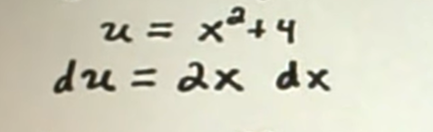 u = x²+4
du = 2x dx